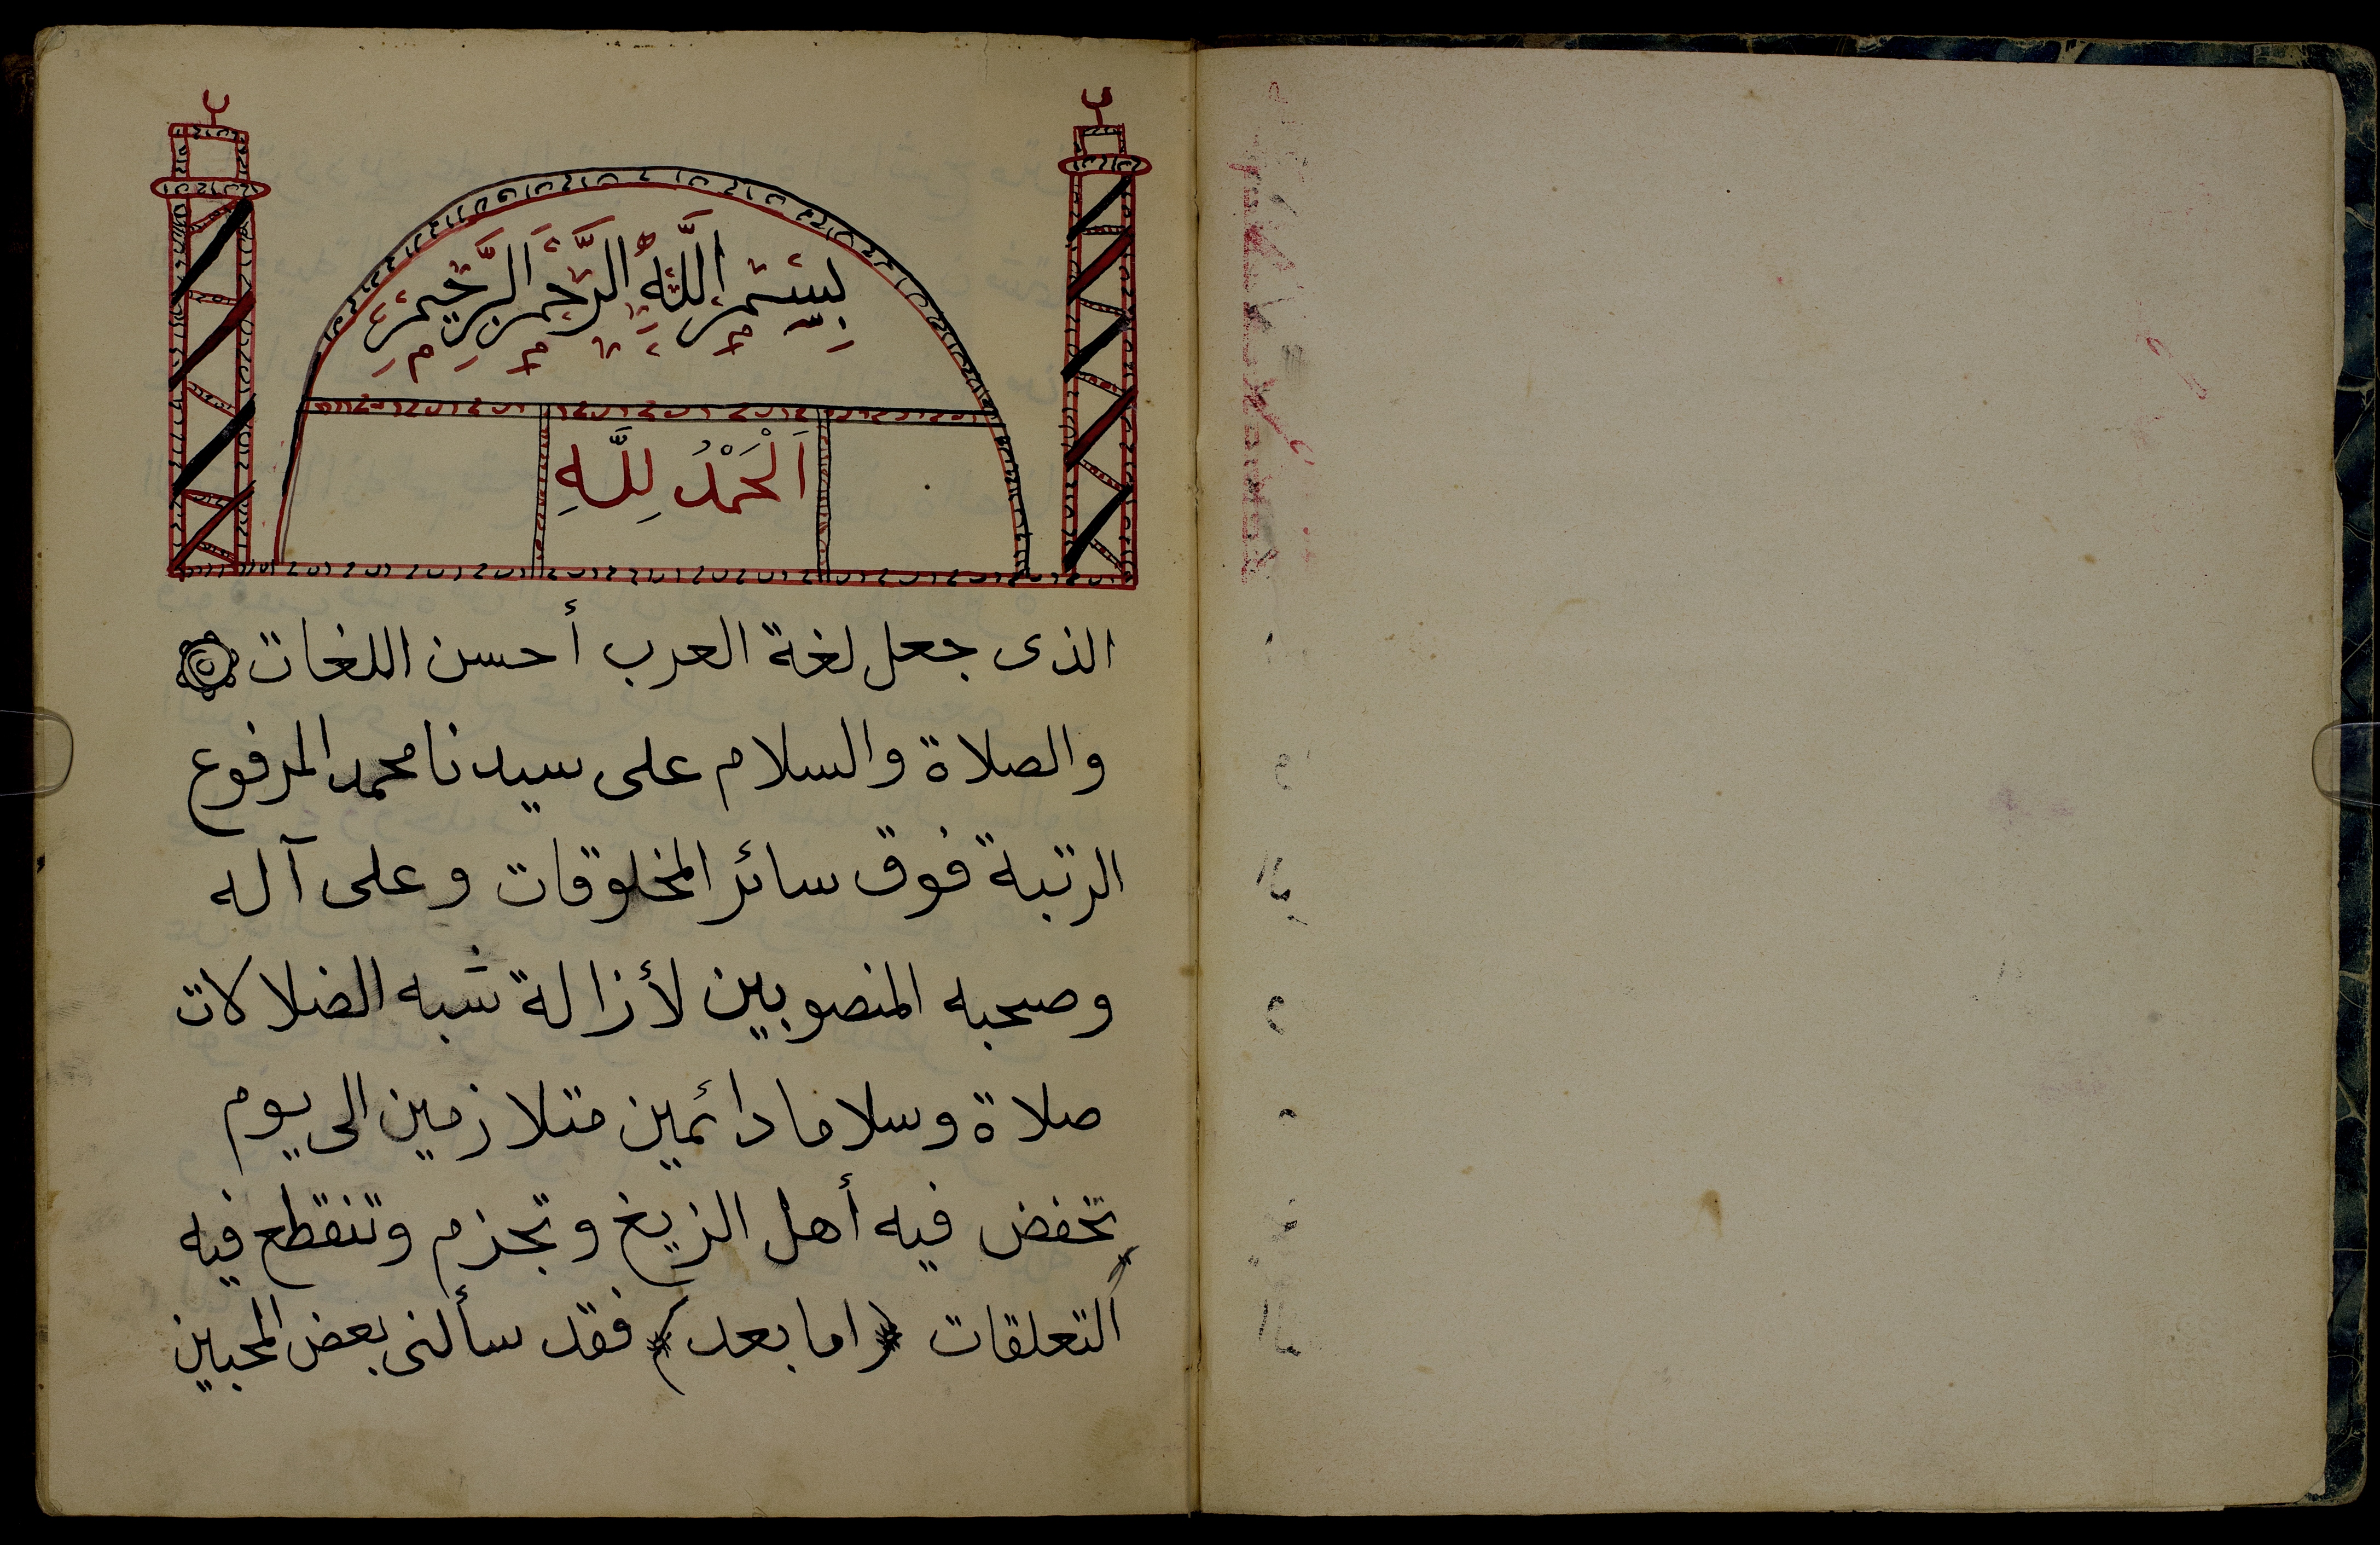 بِسْمِ اللَّهِ الرَّحْمَنِ الرَّحِيمِ
اَلْحَمْدُ لِلَّهِ
الذى جعل لغة العرب أحسن اللغات
والصلاة والسلام على سيدنا محمد المرفوع
الرتبة فوق سائر المخلوقات وعلى آله
وصحبه المنصوبين لأزالة شبه الضلالات
صلاة وسلاما دائمين متلازمين الى يوم
تخفض فيه أهل الزيغ وتجزم وتنقطع فيه
التعلقات (اما بعد) فقد سألنى بعض المحبين